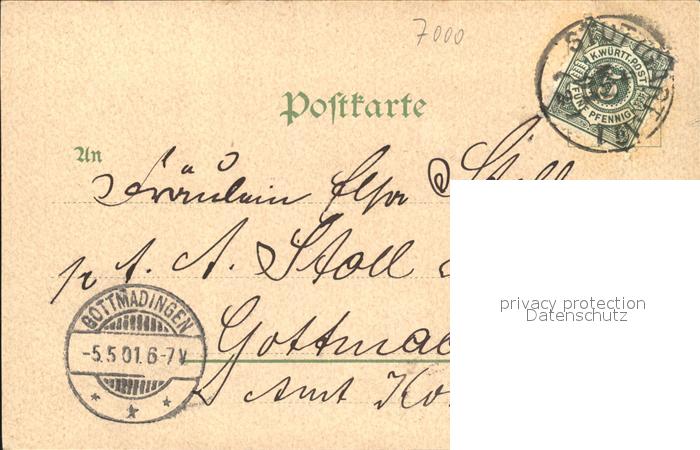 7000
STUTTGART
K. WÜRTT. POST
5
FÜNF PFENNIG
Postkarte
An
Fräulein Elsa Stoll
p. A. A. Stoll
Gottmad
Amt Ko
GOTTMADINGEN
-5.5.01.6-7V.
privacy protection
Datenschutz